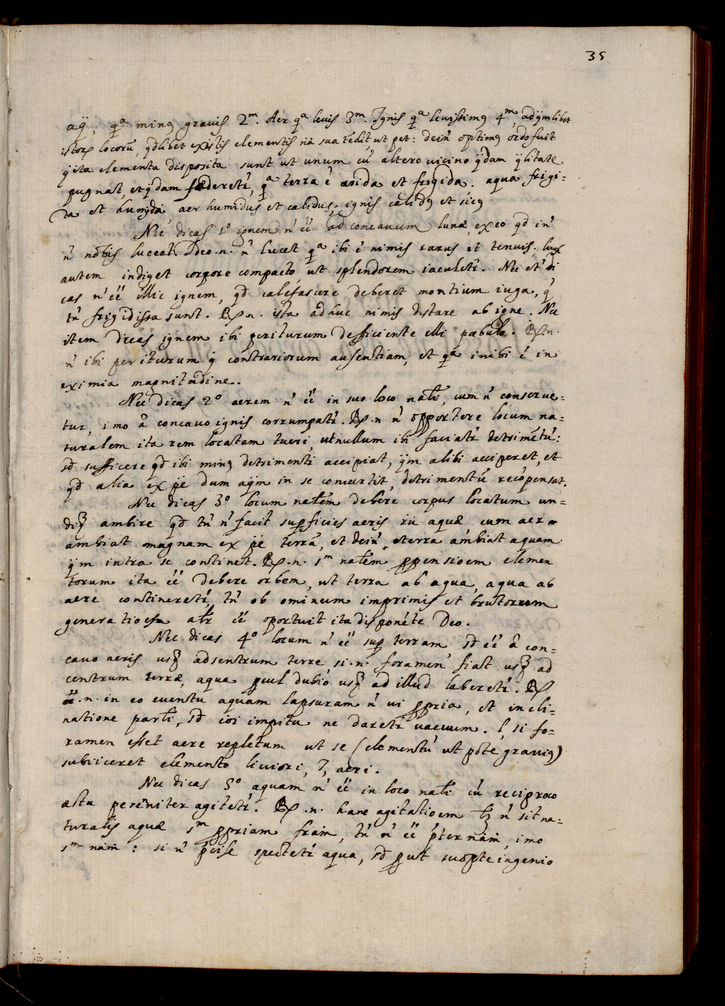 35
aq̃, qᵃ minꝯ gravis 2ᵐ. Aer qᵃ levis 3ᵐ. Ignis qᵃ levissimꝯ 4ᵐ
istorꝫ locorũ, qdlibet ex istis elementis sua tedit ut pet: dein optimꝯ ordo fuit
q̃ ita elementa disposita sunt ut unum cũ altero vicino q̃dam q̃litate
pugnat, et q̃dam foederetr̃, qᵃ terra ẽ arida et frigida. aqua frigi-
da et humida aer humidus et calidus, ignis calidꝯ et siccꝯ
Nec dicas 1º ignem ñ ẽẽ ad concavum lunæ ex eo qd inʳ
ñ nobis luceat. Ideo .n. ñ lucet qᵃ ibi ẽ nimis rarus et tenuis. lux
autem indiget corpore compacto ut splendorem iaculetr̃. Nec etʳ di
cas ñ ẽẽ illic ignem, qd calefacere deberet montium iuga, q̃
tñ frigidissa sunt. Rꝫ.n. ista adhuc nimis distare ab igne. Nec
item dicas ignem ibi periturum defficiente illi pabulo. Rꝫ.n.
ñ ibi periturum q̃ contrariorum ausentiam, et qᵃ inibi ẽ in
eximia magnitudine.
Nec dicas 2º aerem ñ ẽẽ in suo loco natli, cum ñ conserve-
tur, imo à concavo ignis corrumpatr̃. Rꝫ.n ñ opportere locum na-
turalem ita rem locatam tueri, ut nullum ibi faciatr̃ detrimẽtũ:
sd sufficere qd ibi minꝯ detrimenti accipiat, q̃m alibi acciperet, et
qd alia ex pẽ dum aq̃m in se convertit, detrimentũ recõpenset.
Nec dicas 3º locum natlẽm debere corpus locatum un-
diqꝫ ambire qd tñ ñ facit supficies aeris ĩu aquæ, cum aer
ambiat magnam ex pẽ terrã, et dein, et terra ambiat aquam
q̃m intra se continet. Rꝫ.n. 1ᵐ natlẽm ppensioẽm elemen
torum ita ẽẽ debere orbem, ut terra ab aqua, aqua ab
aere contineretr̃, tñ ob ominum imprimis et brutorum
generatioẽm atr̃ ẽẽ oportuit ita disponẽte Deo.
Nec dicas 4º locum ñ ẽẽ sup terram sd ẽẽ à con-
cavo aeris usqꝫ ad sentrum terre si .n. foramen fiat usqꝫ ad
centrum terræ aqua pcul dubio usqꝫ ad illud laberetr̃. Rꝫ
.n. in eo eventu aquam lapsuram ñ vi ppria, et incli-
natione parti, sd eoi impitu ne daretr̃ vacuum. l, si fo-
ramen esset aere repletum ut se (elementũ ut pote graviꝯ)
subiiceret elemento liviori, ꝫ, aeri.
Nec dicas 5º aquam ñ ẽẽ in loco natli cũ reciproco
æstu perẽniter agitetr̃. Rꝫ.n. hanc agitatioẽm lꝫ ñ sit na-
turalis aquæ 1ᵐ ppriam fram, tñ ñ ẽẽ pter nãm, imo
1ᵐ nãm: si ñ p se spectetr̃ aqua, sd put suopte ingenio